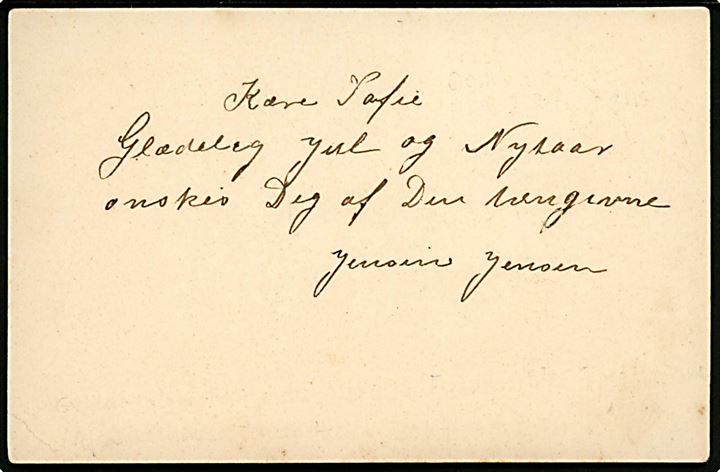 Kære Sofie
Glædelig Jul og Nytaar
ønskes Dig af Din hengivne
Jensine Jensen